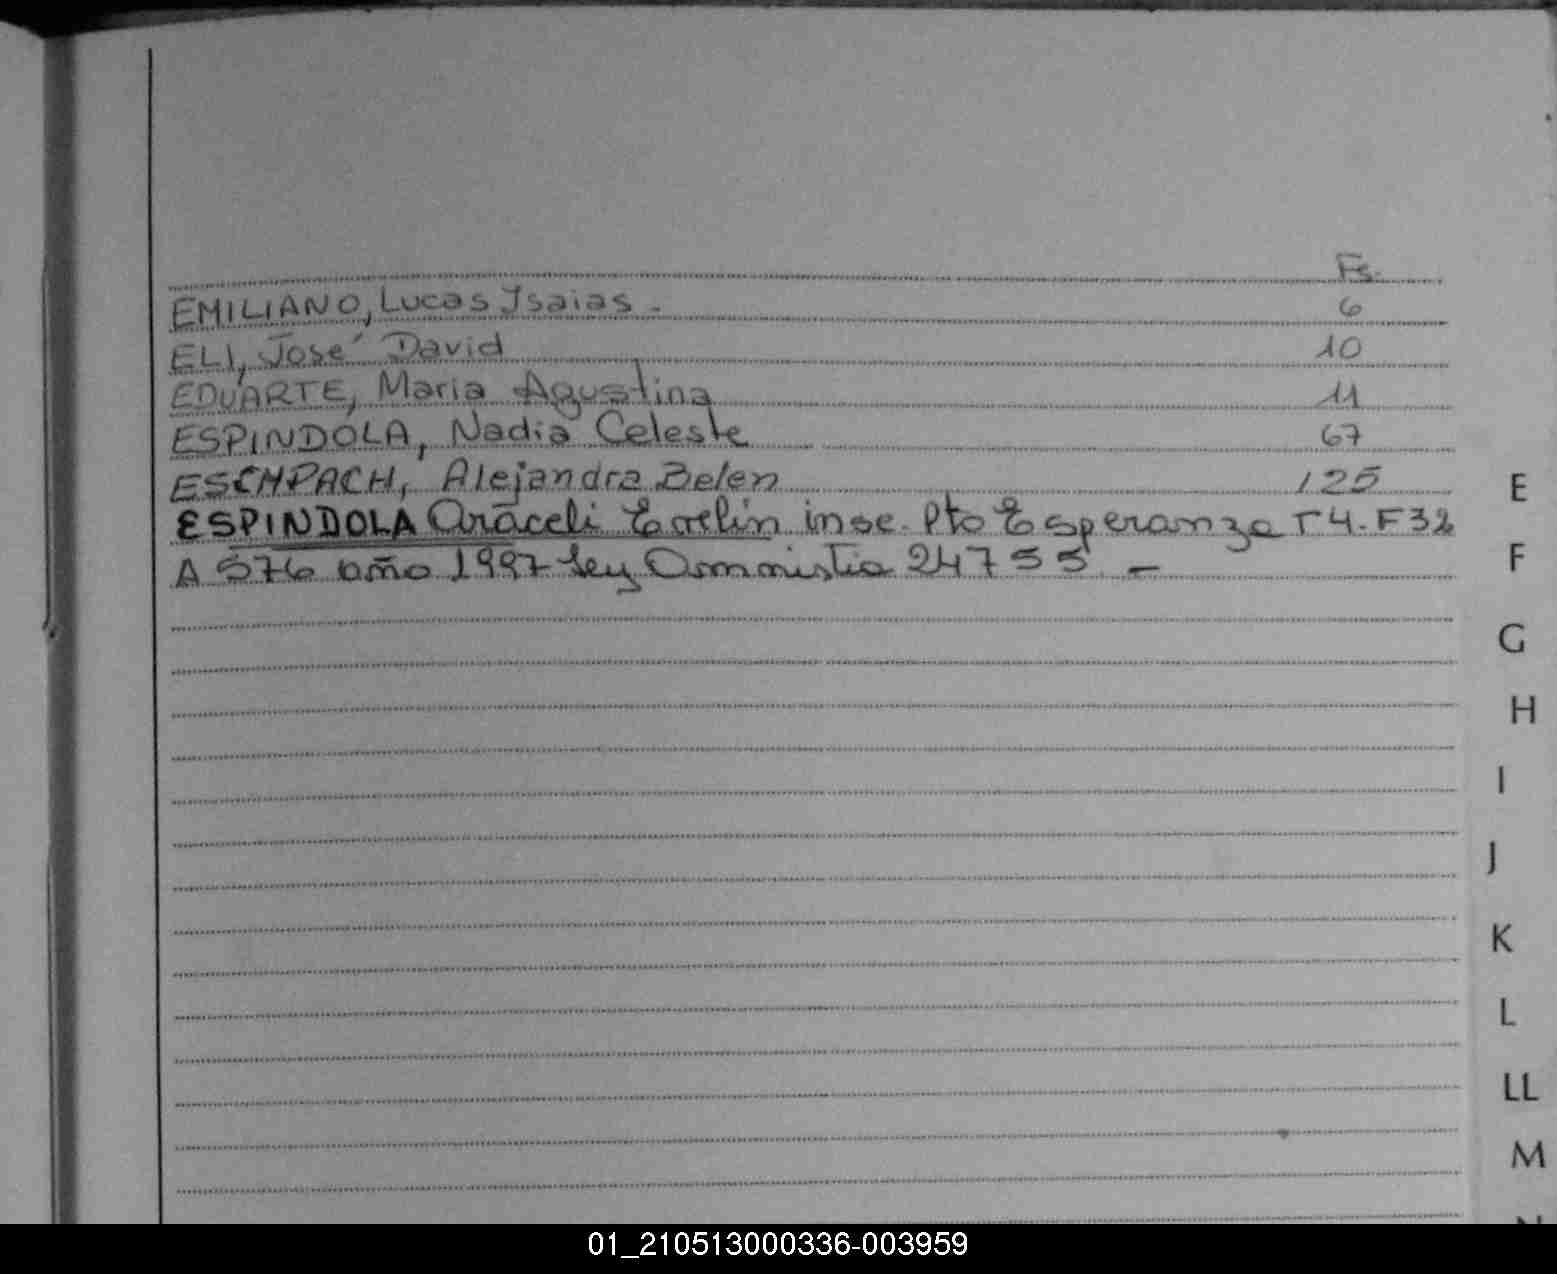 Fs.
EMILIANO, Lucas Isaias - 6
ELI, José David 10
EDUARTE, Maria Agustina 11
ESPINDOLA, Nadia Celeste 67
ESCHPACH, Alejandra Belen 125
ESPINDOLA Araceli Evelin insc. Pto Esperanza T4. F32
A 576 año 1997 Ley Ammistia 24755 -
E
F
G
H
I
J
K
L
LL
M
01_210513000336-003959